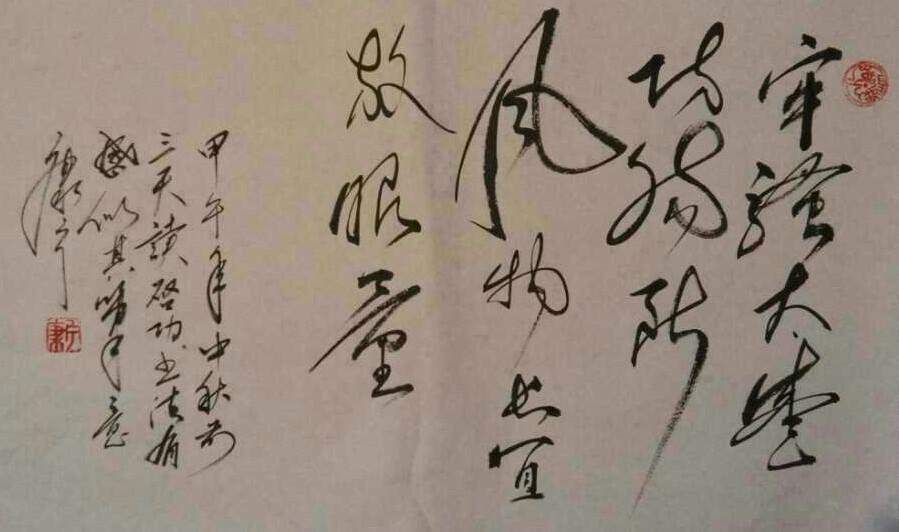 牢骚太盛
防肠断
风物长宜
放眼量
甲午年中秋前
三天读启功书法有
感似其笔意